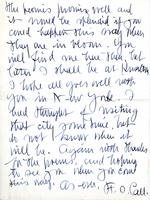 the peonies promise well and
it would be splendid if you
could happen this way when
they are in bloom. You
will find me here then, but
later I shall be at
I hope all goes well with
you in New York. I
had thought of visiting
that city some time, but
do not know when it
will be. Again with thanks
for the poems, and hoping
to see you when you come
this way. As ever,
F. O. Call.